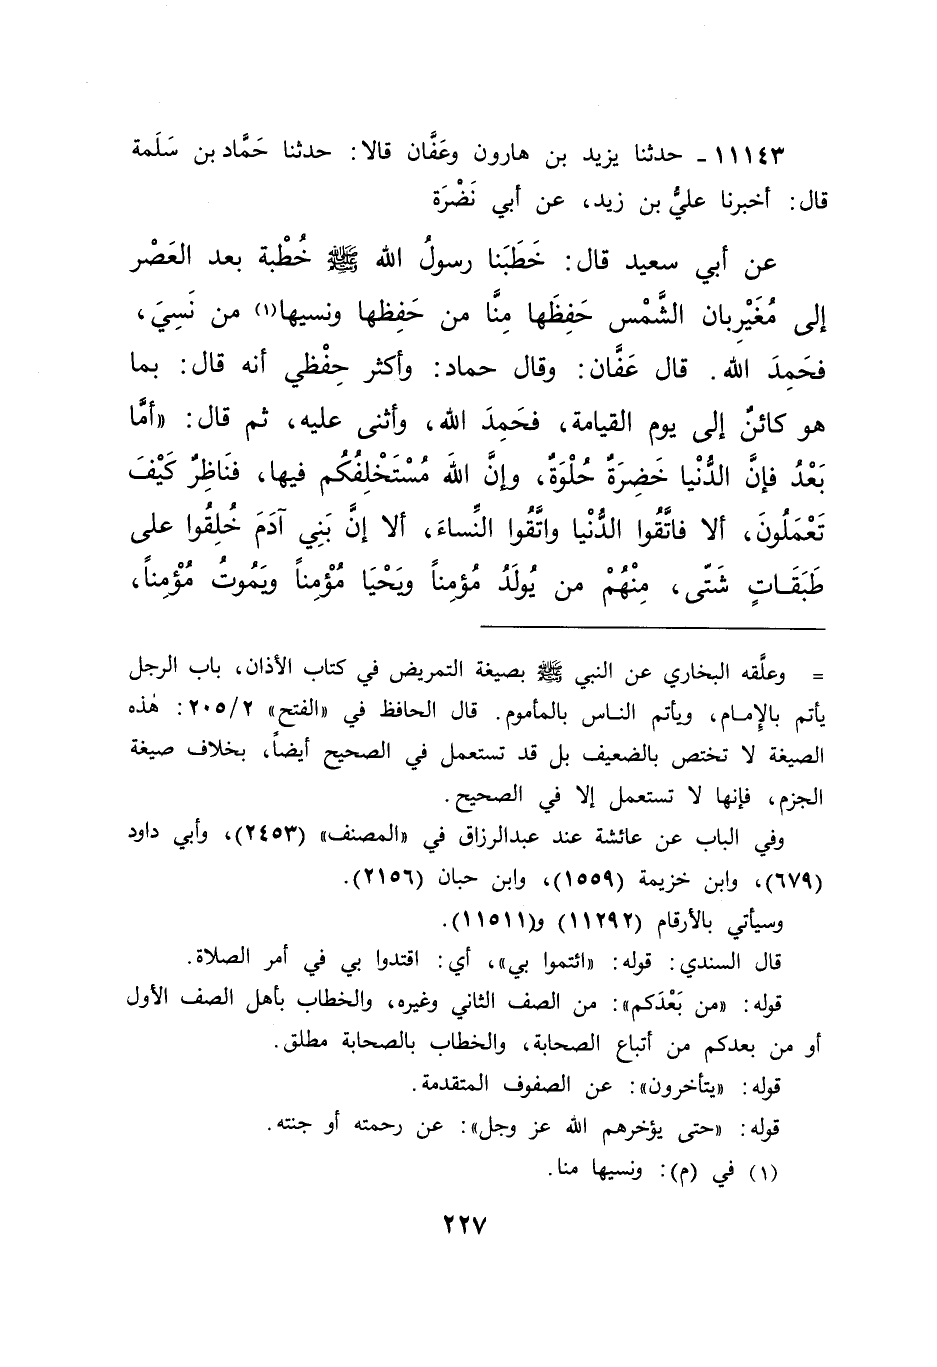 ١١١٤٣ - حدثنا يزيد بن هارون وعَفَّان قالا: حدثنا حَمَّاد بن سَلَمة
قال: أخبرنا عليُّ بن زيد، عن أبي نَضْرَة
عن أبي سعيد قال: خَطَبَنا رسولُ الله ﷺ خُطْبة بعد العَصْر
إلى مُغَيْرِبان الشَّمْس حَفِظَها مِنَّا من حَفِظها ونسيها(١) من نَسِيَ،
فحَمِدَ الله. قال عَفَّان: وقال حماد: وأكثر حِفْظي أنه قال: بما
هو كائنٌ إلى يوم القيامة، فحَمِدَ الله، وأثنى عليه، ثم قال: «أمَّا
بَعْدُ فإنَّ الدُّنْيا خَضِرَةٌ حُلْوَةٌ، وإنَّ اللهَ مُسْتَخْلِفُكُم فيها، فَناظِرٌ كَيْفَ
تَعْمَلُونَ، ألا فاتَّقُوا الدُّنْيا واتَّقُوا النِّساءَ، ألا إنَّ بَنِي آدَمَ خُلِقُوا على
طَبَقَاتٍ شَتَّى، مِنْهُمْ من يُولَدُ مُؤمِناً ويَحْيَا مُؤْمِناً ويَمُوتُ مُؤْمِناً،
= وعلَّقه البخاري عن النبي ﷺ بصيغة التمريض في كتاب الأذان، باب الرجل
يأتم بالإمام، ويأتم الناس بالمأموم. قال الحافظ في «الفتح» ٢٠٥/٢: هٰذه
الصيغة لا تختص بالضعيف بل قد تستعمل في الصحيح أيضاً، بخلاف صيغة
الجزم، فإنها لا تستعمل إلا في الصحيح.
وفي الباب عن عائشة عند عبدالرزاق في «المصنف» (٢٤٥٣)، وأبي داود
(٦٧٩)، وابن خزيمة (١٥٥٩)، وابن حبان (٢١٥٦).
وسيأتي بالأرقام (١١٢٩٢) و(١١٥١١).
قال السندي: قوله: «ائتموا بي»، أي: اقتدوا بي في أمر الصلاة.
قوله: «من بَعْدَكم»: من الصف الثاني وغيره، والخطاب بأهل الصف الأول
أو من بعدكم من أتباع الصحابة، والخطاب بالصحابة مطلق.
قوله: «يتأخرون»: عن الصفوف المتقدمة.
قوله: «حتى يؤخرهم الله عز وجل»: عن رحمته أو جنته.
(١) في (م): ونسيها منا.
٢٢٧